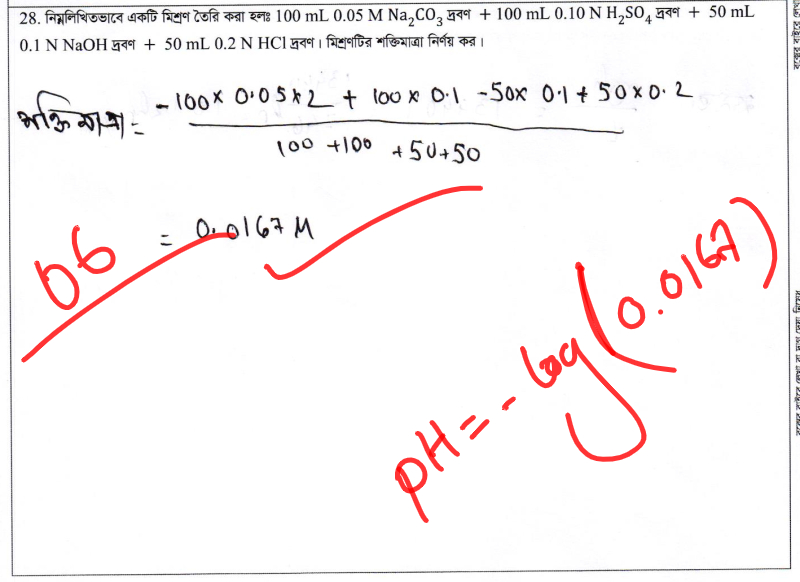 28. নিম্নলিখিতভাবে একটি মিশ্রণ তৈরি করা হলঃ 100 mL 0.05 M Na₂CO₃ দ্রবণ + 100 mL 0.10 N H₂SO₄ দ্রবণ + 50 mL
0.1 N NaOH দ্রবণ + 50 mL 0.2 N HCl দ্রবণ। মিশ্রণটির শক্তিমাত্রা নির্ণয় কর।
শক্তিমাত্রা = -100 x 0.05 x 2 + 100 x 0.1 - 50 x 0.1 + 50 x 0.2
100 + 100 + 50 + 50
= 0.0167 M
06
pH = - log (0.0167)